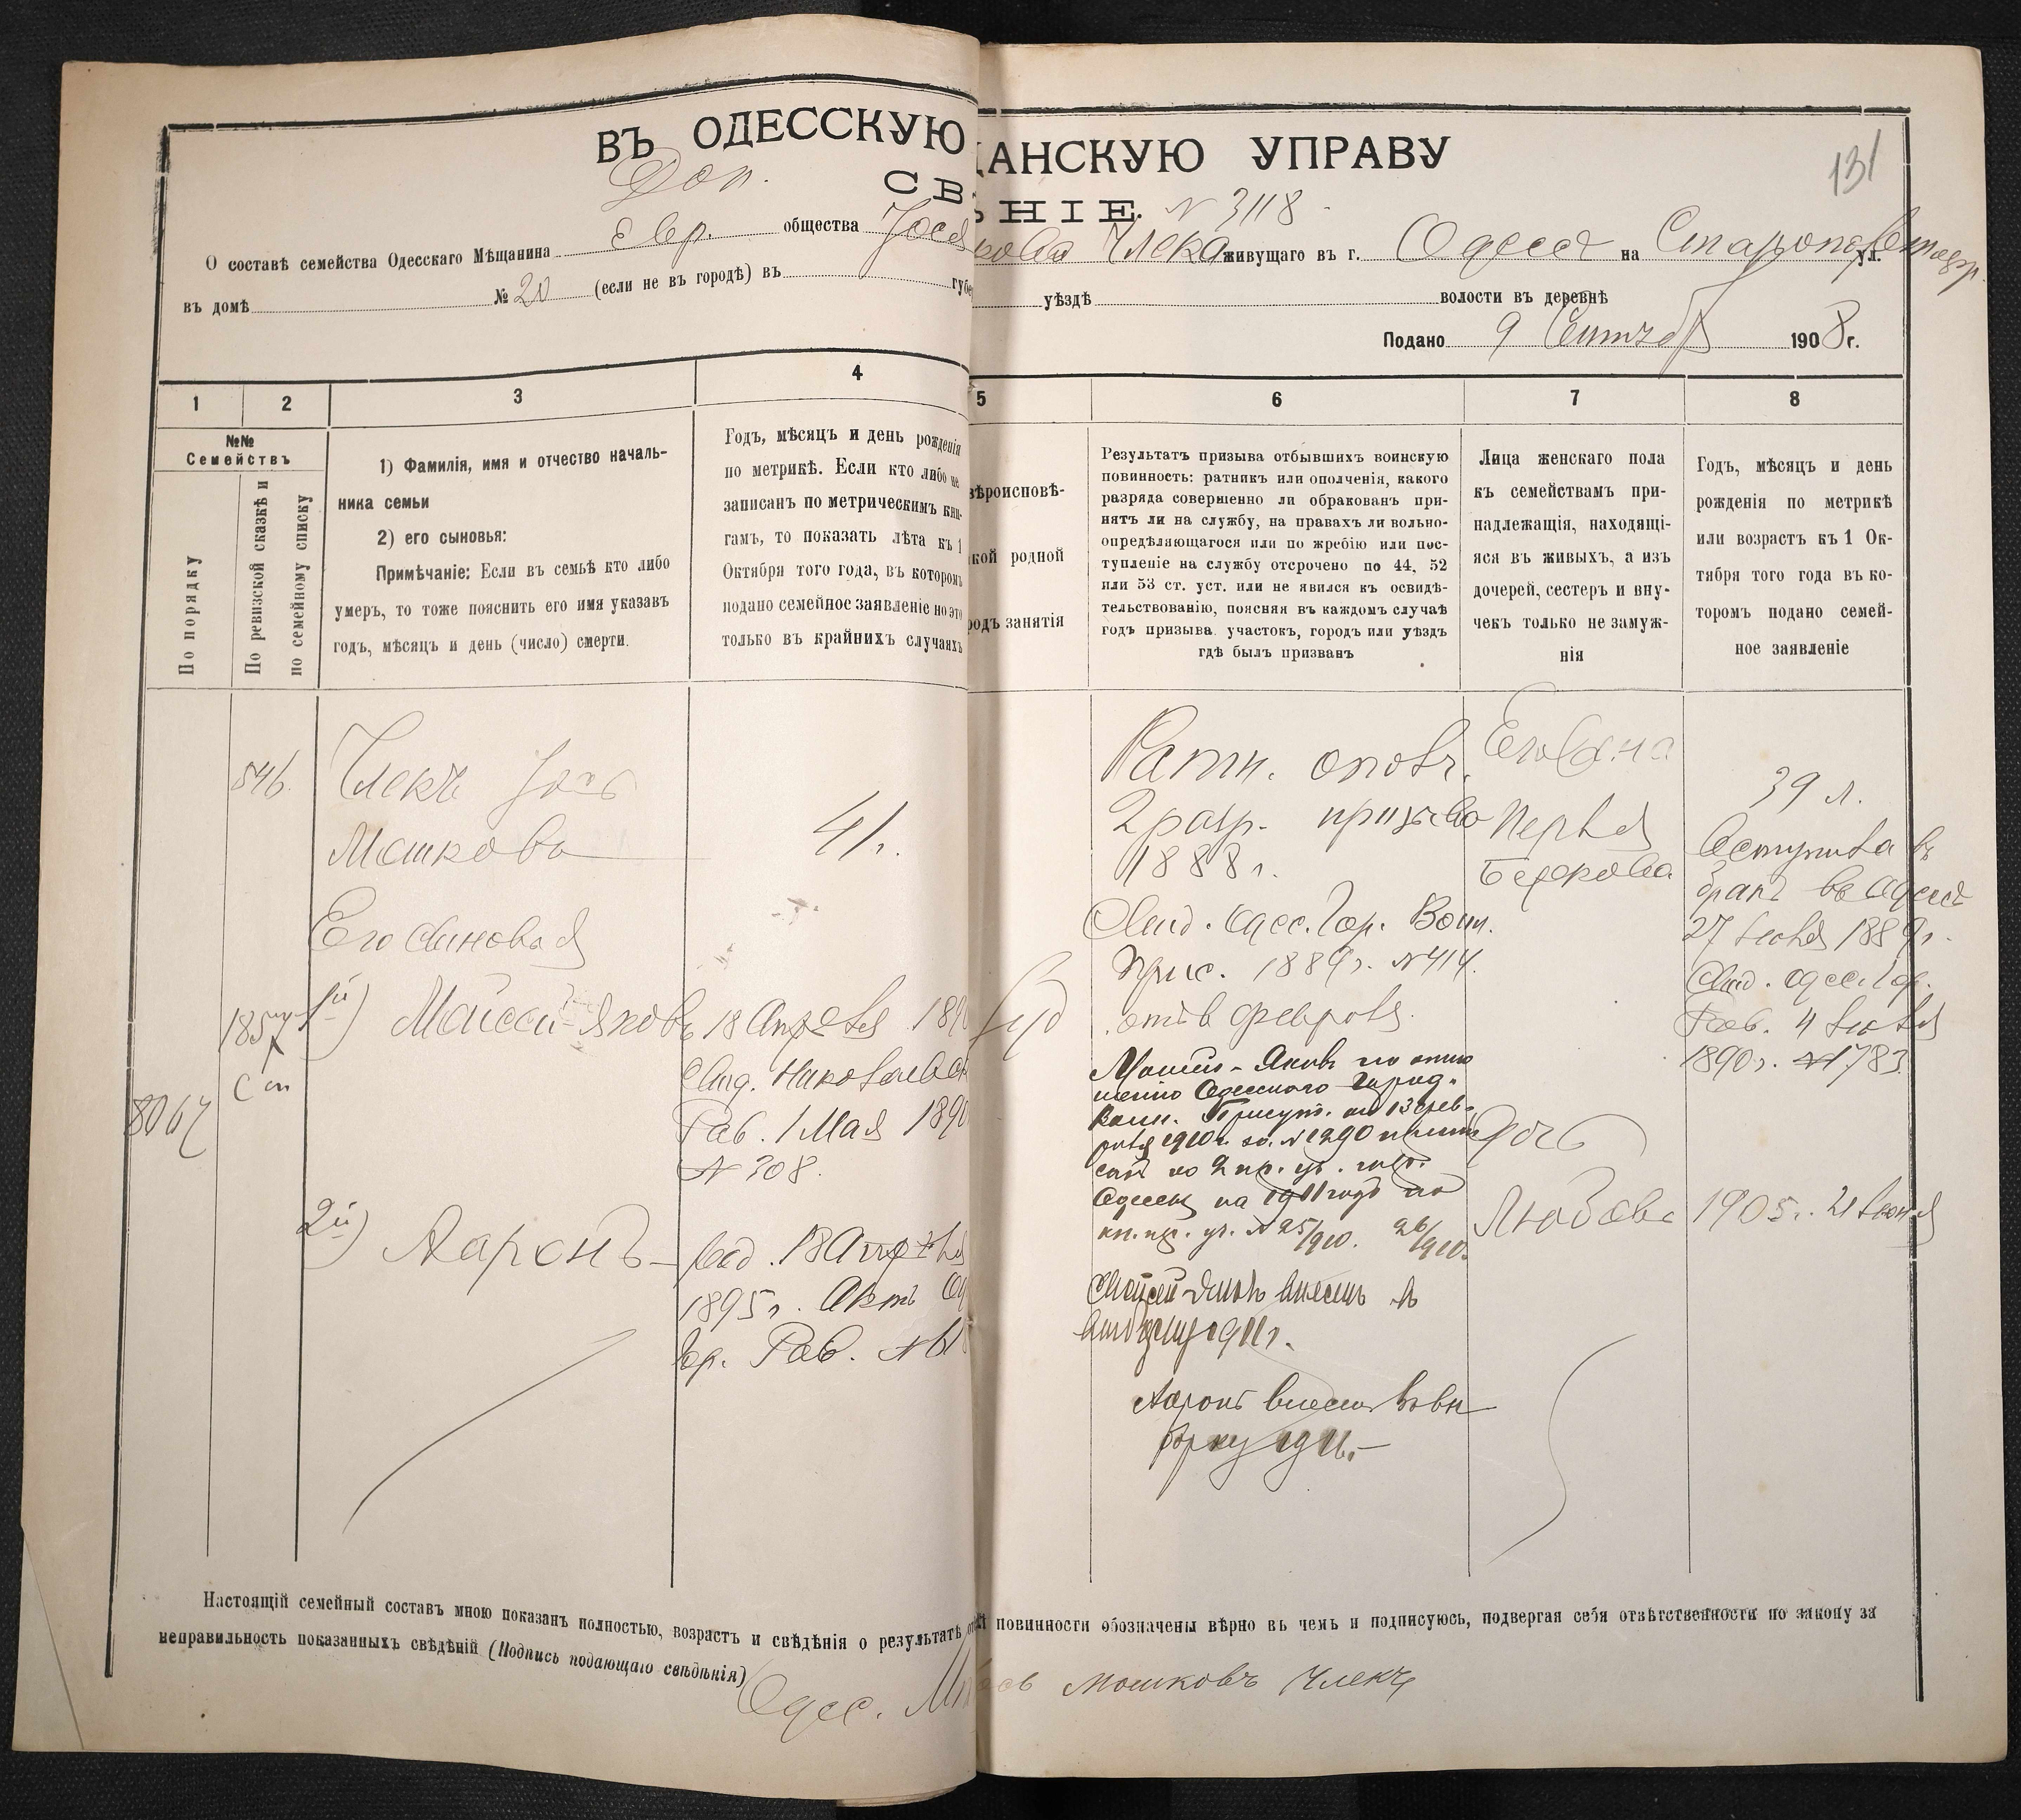 ВЪ ОДЕССКУЮ ЩАНСКУЮ УПРАВУ
131
Доп.
СВ ѢНІЕ. N 3118
О составѣ семейства Одесскаго Мѣщанина Евр. общества Іося Члека живущаго въ г. Одессѣ на Старопортофр. ул.
въ домѣ № 20 (если не въ городѣ) въ губе уѣздѣ волости въ деревнѣ
Подано 9 Сентяб 1908 г.
1 2 3 4 5 6 7 8
№№
Семействъ
По порядку
По ревизской сказкѣ и
по семейному списку
1) Фамилія, имя и отчество началь-
ника семьи
2) его сыновья:
Примѣчаніе: Если въ семьѣ кто либо
умеръ, то тоже пояснить его имя указавъ
годъ, мѣсяцъ и день (число) смерти.
Годъ, мѣсяцъ и день рожденія
по метрикѣ. Если кто либо не
записанъ по метрическимъ кни-
гамъ, то показать лѣта къ 1
Октября того года, въ которомъ
подано семейное заявленіе но это
только въ крайнихъ случаяхъ
вѣроисповѣ-
кой родной
родъ занятія
Результатъ призыва отбывшихъ воинскую
повинность: ратникъ или ополченія, какого
разряда совершенно ли обракованъ при-
нятъ ли на службу, на правахъ ли вольно-
опредѣляющагося или по жребію или пос-
тупленіе на службу отсрочено по 44, 52
или 53 ст. уст. или не явился къ освидѣ-
тельствованію, поясняя въ каждомъ случаѣ
годъ призыва участокъ, городъ или уѣздъ
гдѣ былъ призванъ
Лица женскаго пола
къ семействамъ при-
надлежащія, находящі-
яся въ живыхъ, а изъ
дочерей, сестеръ и вну-
чекъ только не замуж-
нія
Годъ, мѣсяцъ и день
рожденія по метрикѣ
или возрастъ къ 1 Ок-
тября того года въ ко-
торомъ подано семей-
ное заявленіе
546.
Члекъ Іось
Мошковъ
41.
Его сыновья
1857
С сп
8067
1й) Мойсей-Яковъ
18 Апрѣля 1890
Свид. Николаевск
Рав. 1 Мая 1890
N 308.
2й) Ааронъ
род. 18 Апрѣля
1895 г. Актъ Од
Гор. Рав. N
Іуд
Ратн. ополч.
2 разр. призыва
1888 г.
Свид. Одес. Гор. Воин.
Прис. 1889 г. N 414.
отъ 6 февраля.
Мойсей-Яковъ по отно
шенію Одесскаго Город.
Воин. Присут. отъ 13 фев-
раля 1910 г. за N 1290 припи
санъ ко 2 пр. уч. гор.
Одессы на 1911 годъ по
кн. пр. уч. N 25/910. 26/910.
Мойсей-Яковъ внесенъ въ
1911 г.
Ааронъ внесенъ
Его жена
Перля
Беркова
Дочь
Любовь
39 л.
Вступила въ
бракъ въ Одессѣ
27 Іюля 1889 г.
Свид. Одес. Гор.
Рав. 4 Іюля
1890 г. N 1783.
1905 г. 21 Іюня
Настоящій семейный составъ мною показанъ полностью, возрастъ и свѣдѣнія о результатѣ повинности обозначены вѣрно въ чемъ и подписуюсь, подвергая себя отвѣтственности по закону за
неправильность показанныхъ свѣдѣній (Подпись подающаго свѣдѣнія)
Одес. Мѣ Іось Мошковъ Члекъ